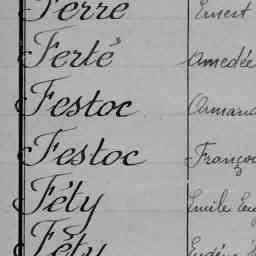 Ferre Ernest
Ferté Amedée
Festoc Armand
Festoc Franço
Féty Emile Eug
Féty Eugène